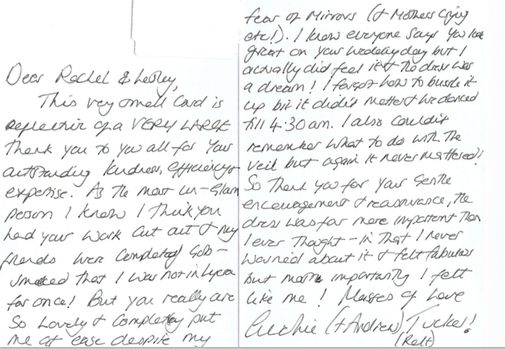 Dear Rachel & Lesley,
This very small Card is
reflective of a VERY LARGE
thank you to you all for your
outstanding kindness, efficiency &
expertise. As the most un-Glam
person I know I think you
had your work cut out & my
friends were completely gob-
smacked that I was not in Lycra
for once! But you really are
so lovely & completely put
me at ease despite my
fear of Mirrors (& Mothers crying
etc!). I know everyone says you look
great on your wedding day but I
actually did feel it & the dress was
a dream! I forgot how to bustle it
up but it didn't matter & we danced
till 4:30am. I also couldn't
remember what to do with the
veil but again it never mattered!!
So thank you for your gentle
encouragement & reassurance, the
dress was far more important than
I ever thought - in that I never
worried about it & felt fabulous
but more importantly I felt
like me! Masses of love
(& Andrew) Tucker!